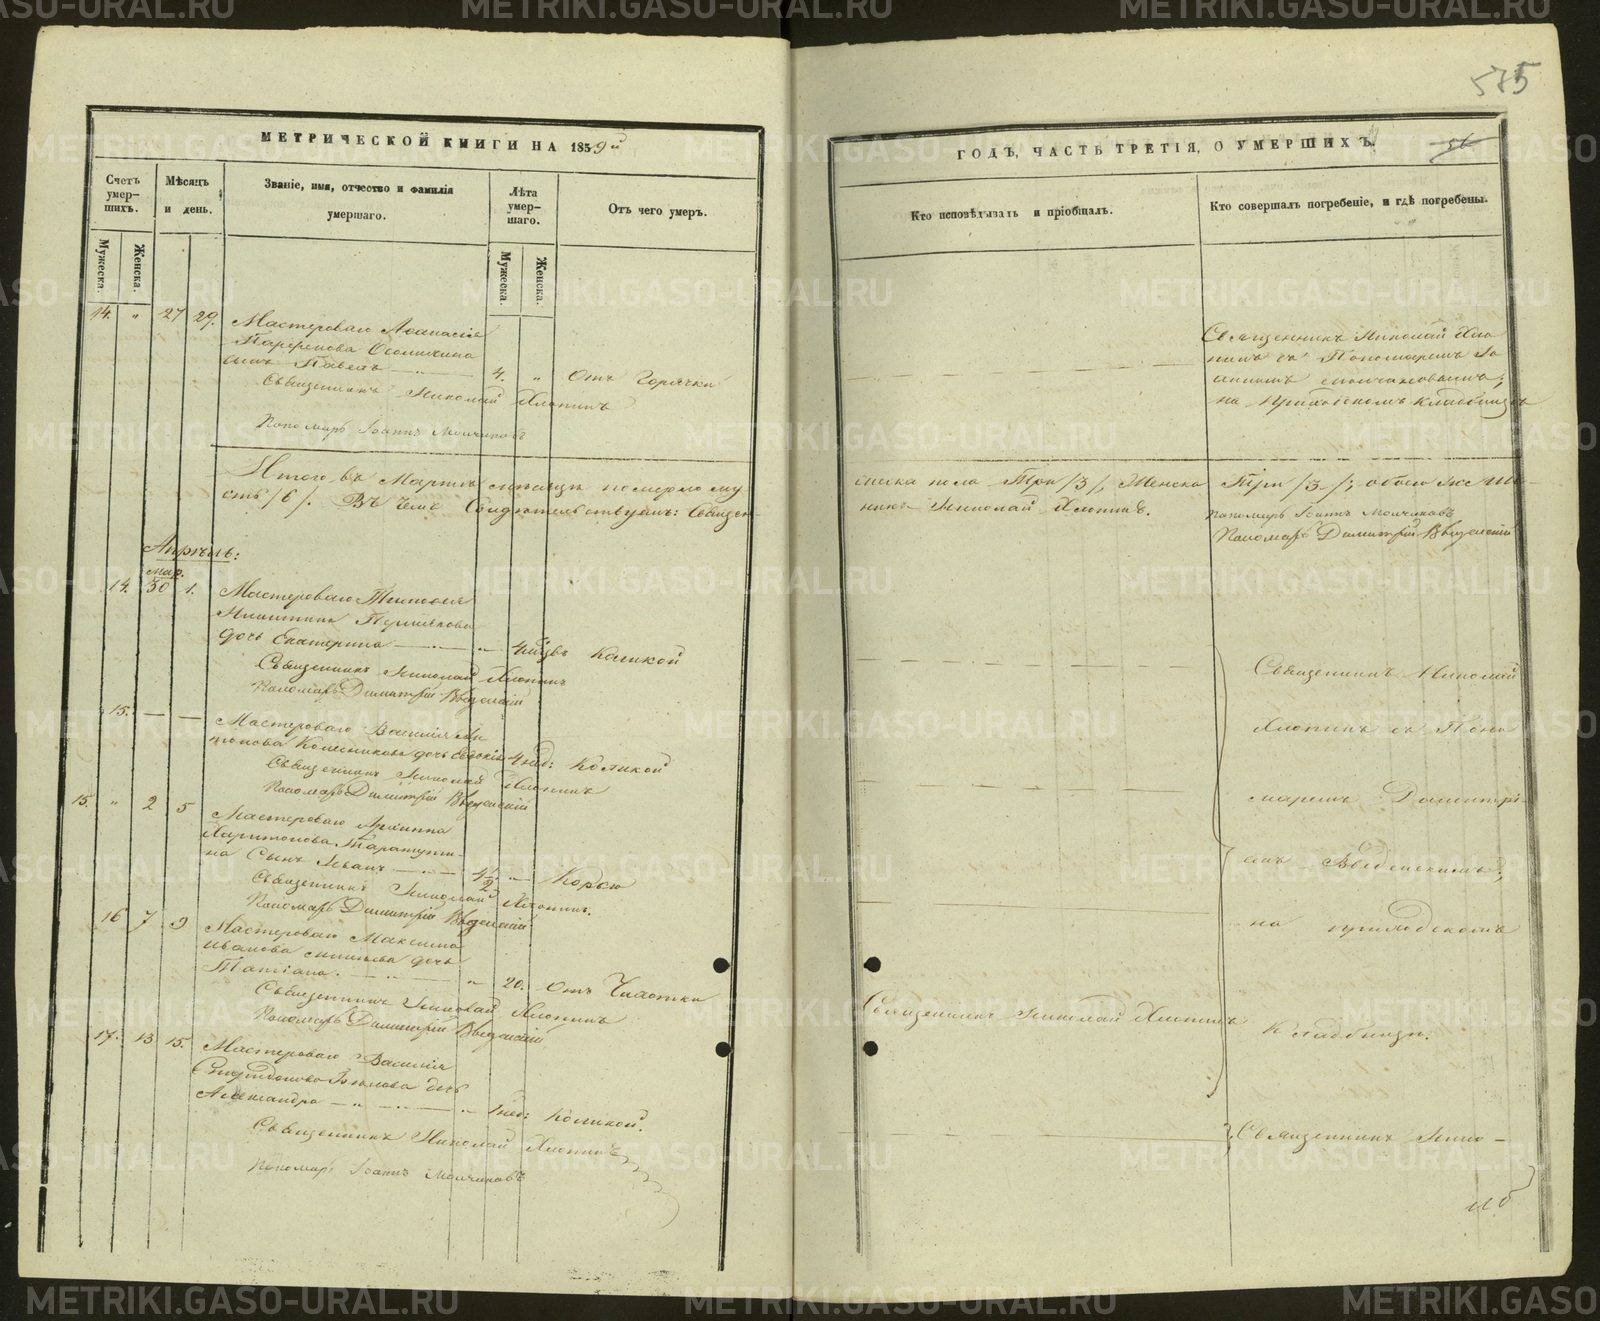 METRIKI.GASO-URAL.RU
585
МЕТРИЧЕСКОЙ КНИГИ НА 1859й
Счетъ умер-шихъ.
Мужеска.
Женска.
Мѣсяцъ и день.
Званіе, имя, отчество и фамилія умершаго.
Лѣта умер-шаго.
Мужеска.
Женска.
Отъ чего умеръ.
14. " 27 29.
Мастероваго Аѳанасія
сынъ Павелъ 4. " Отъ Горячки
Священникъ Николай Хлопинъ
Пономарь Іоаннъ Молчановъ
Итого въ Мартѣ мѣсяцѣ померло му-
сть /6/. Въ чемъ Свидѣтельствуемъ: Священ-
Апрѣль:
мар.
14. 30 1. Мастероваго Тимоѳея
дочь Екатерина "
Коликой
Священникъ Николай Хлопинъ
Пономарь Димитрій Введенскій
15. — — Мастероваго Василія Ан-
тонова Колесникова дочь Евдокія 4 нед: Коликой
Священникъ Николай Хлопинъ
Пономарь Димитрій Введенскій
15. " 2 5 Мастероваго Архиппа
Харитонова
на Сынъ Иванъ 4½ " Корью
Священникъ Николай Хлопинъ.
Пономарь Димитрій Введенскій
16 7 9 Мастероваго Максима
Иванова дочь
Татіана. " 20. Отъ Чахотки
Священникъ Николай Хлопинъ
Пономарь Димитрій Введенскій
17. 13 15. Мастероваго Василія
Спиридонова дочь
Александра " нед: Коликой.
Священникъ Николай Хлопинъ
Пономарь Іоаннъ Молчановъ
ГОДЪ, ЧАСТЬ ТРЕТІЯ, О УМЕРШИХЪ.
Кто исповѣдывалъ и пріобщалъ.
Кто совершалъ погребеніе, и гдѣ погребены.
Священникъ Николай Хло-
пинъ съ Пономаремъ Іо-
анномъ Молчановымъ,
на Приходскомъ кладбищѣ
жеска пола Три /3/, Женска Три /3/; обоего же ше-
никъ Николай Хлопинъ.
Пономарь Іоаннъ Молчановъ
Пономарь Димитрій Введенскій
Священникъ Николай
Хлопинъ съ Поно-
маремъ Димитрі-
емъ Введенскимъ,
на приходскомъ
Священникъ Николай Хлопинъ
кладбищѣ.
Священникъ Нико-